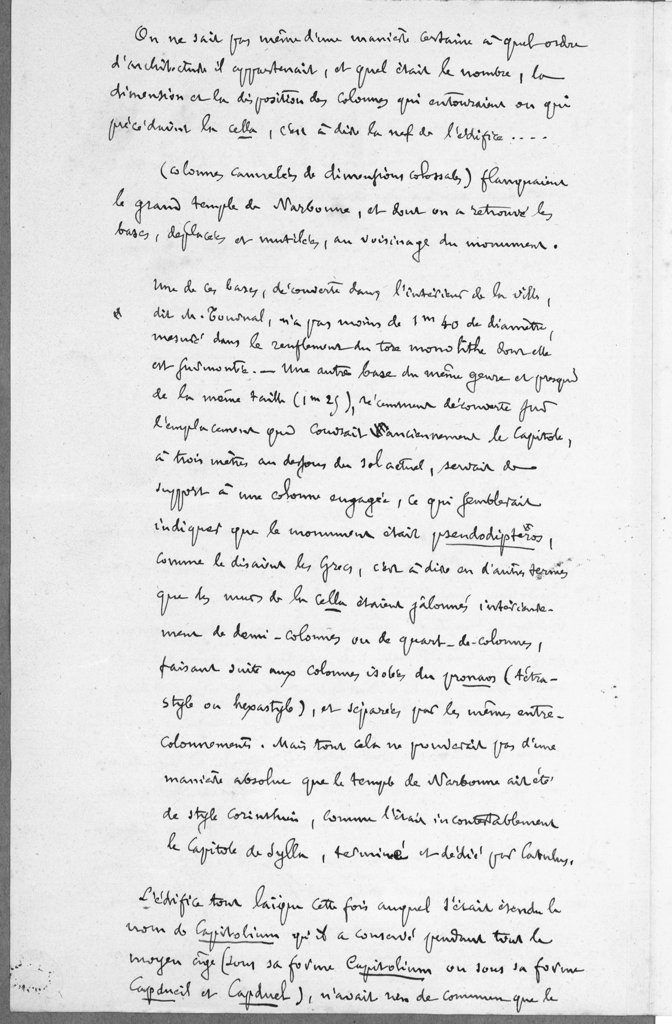 On ne sait pas même d'une manière certaine à quel ordre
d'architecture il appartenait, et quel était le nombre, la
dimension et la disposition des colonnes qui entouraient ou qui
précédaient la cella, c'est à dire la nef de l'édifice ....
(colonnes cannelées de dimensions colossales) flanquaient
le grand temple de Narbonne, et dont on a retrouvé les
bases, déplacées et mutilées, au voisinage du monument.
Une de ces bases, découverte dans l'intérieur de la ville,
dit M. Tournal, n'a pas moins de 1m 40 de diamètre,
mesuré dans le renflement du tore monolithe dont elle
est surmontée. — Une autre base du même genre et presque
de la même taille (1m 25), récemment découverte sur
l'emplacement que couvrait anciennement le Capitole,
à trois mètres au dessous du sol actuel, servait de
support à une colonne engagée, ce qui semblerait
indiquer que le monument était pseudodiptéros,
comme le disaient les Grecs, c'est à dire en d'autres termes
que les murs de la cella étaient jâlonnés intérieure-
ment de demi-colonnes ou de quart-de-colonnes,
faisant suite aux colonnes isolées du pronaos (tétra-
style ou hexastyle), et séparées par les mêmes entre-
colonnements. Mais tout cela ne prouverait pas d'une
manière absolue que le temple de Narbonne ait été
de style corinthien, comme l'était incontestablement
le Capitole de Sylla, terminé et dédié par Catulus.
L'édifice tout laïque cette fois auquel s'était étendu le
nom de Cappitolium qu'il a conservé pendant tout le
moyen âge (sous sa forme Capitolium ou sous sa forme
Capdueil et Capduel), n'avait rien de commun que le